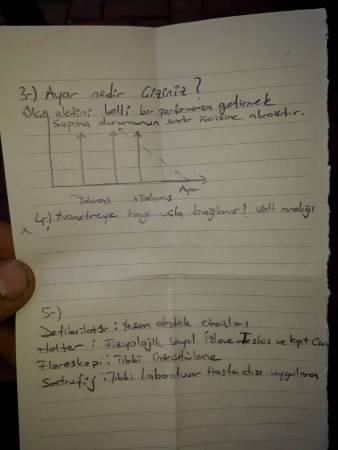 3-) Ayar nedir Çiziniz?
Ölçü aletini belli bir performansa getirmek
Sapma durumunun sınır içerisine almaktır.
Tolerans +Tolerans Ayar
4-) Avometreye hangi uçla bağlanır? Volt aralığı
x
5-)
Defibrilatör: Yaşam destek cihazları
Holter: Fizyolojik Sinyal İzleme Teshis ve kayıt
Floroskopi: Tıbbi Görüntüleme
Santrafij: Tıbbi Laboratuvar Hasta dışı uygulama